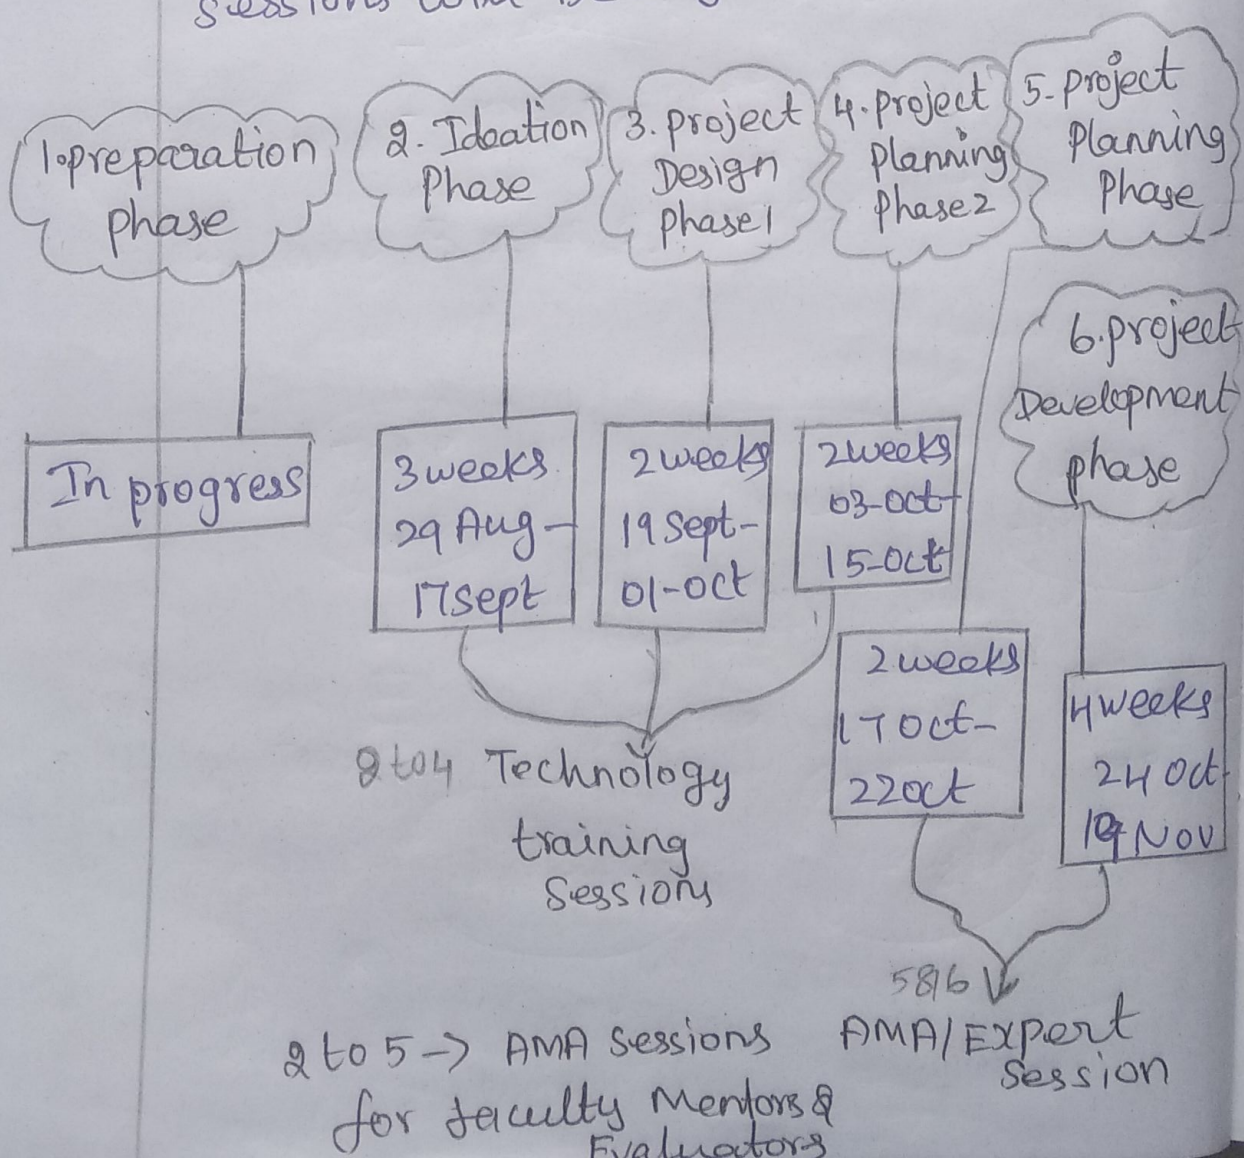 sessions
1.preparation
phase
2. Ideation
Phase
3. project
Design
phase1
4. project
planning
phase2
5. project
planning
phase
6. project
Development
phase
In progress
3 weeks
29 Aug-
17 Sept
2 weeks
19 Sept-
01-oct
2 weeks
03-oct-
15-oct
2 weeks
17 oct-
22 oct
4 weeks
24 oct
19 Nov
2 to 4 Technology
training
Sessions
5&6
AMA/Expert
Session
2 to 5 -> AMA Sessions
for faculty Mentors &
Evaluators